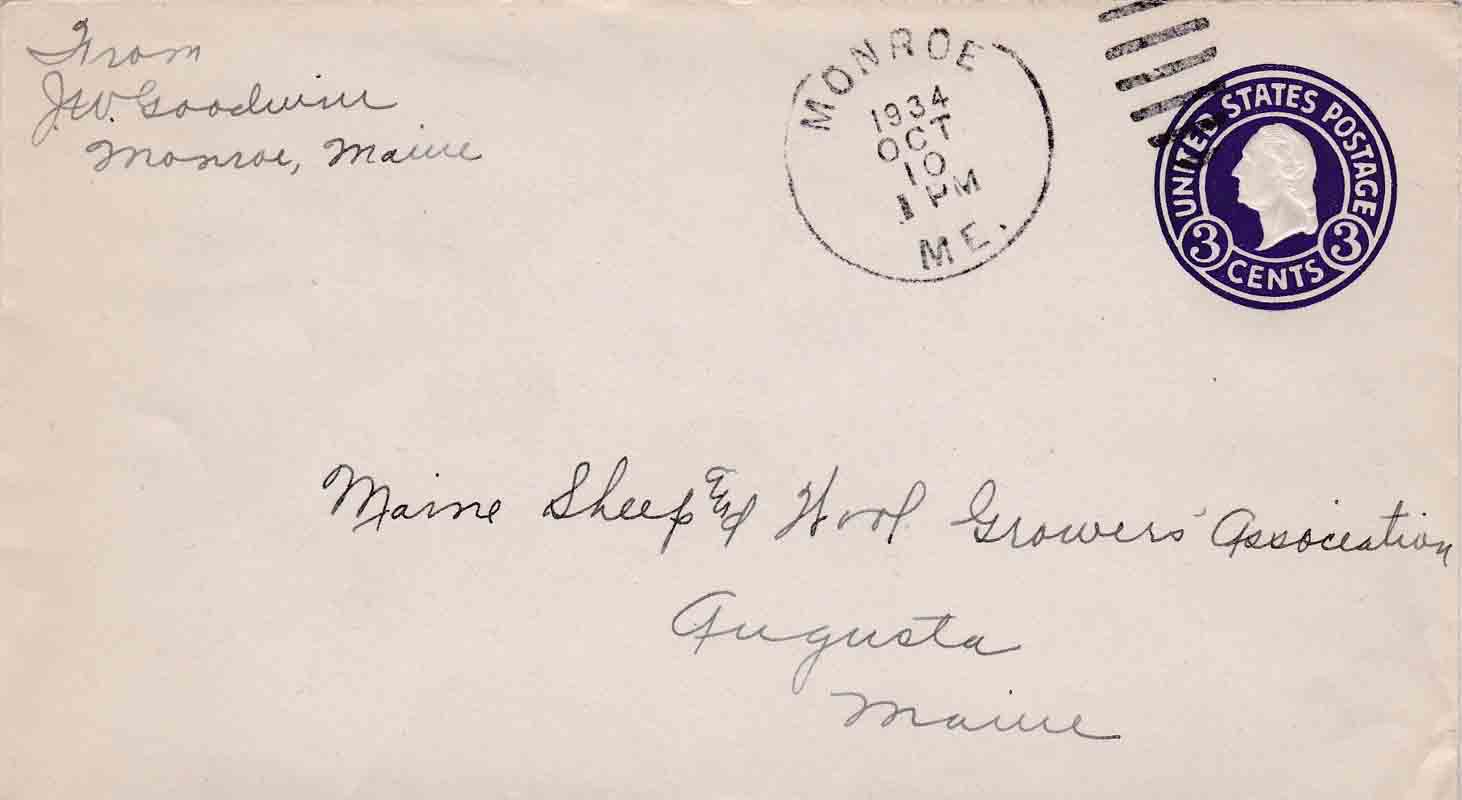 From
J.W. Goodwin
Monroe, Maine
MONROE
1934
OCT
10
1 PM
ME.
UNITED STATES POSTAGE
3 CENTS 3
Maine Sheep and Wool Growers' Association
Augusta
Maine